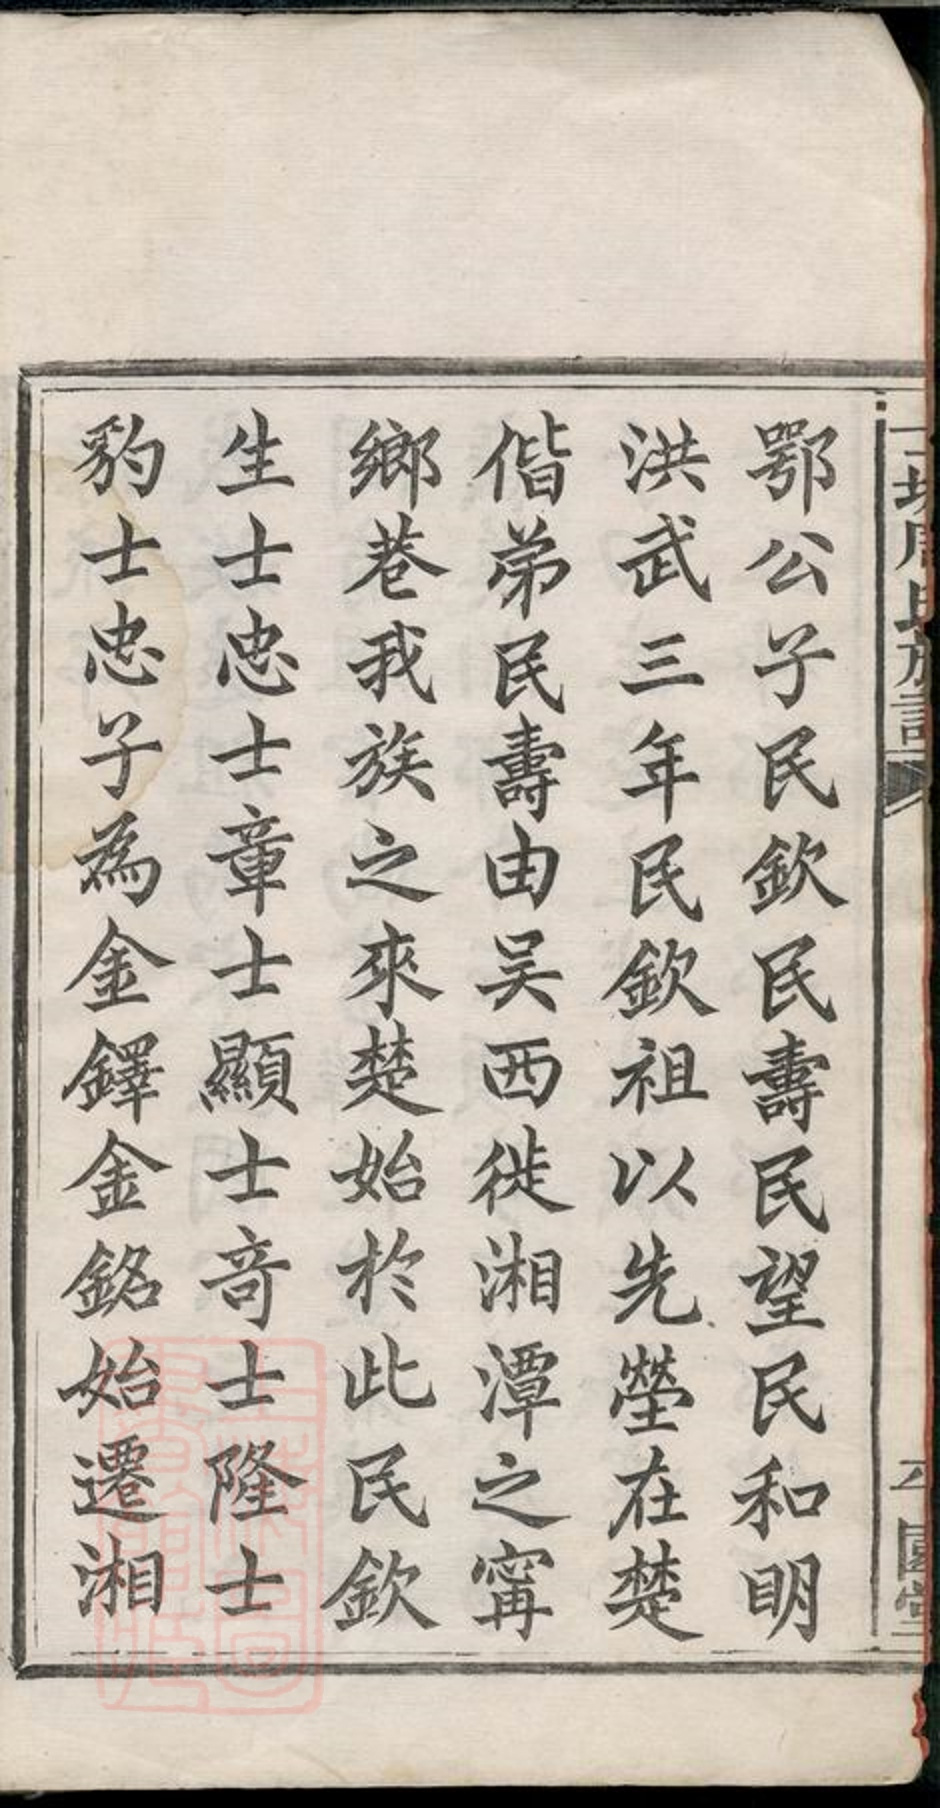 鄂公子民欽民壽民望民和明
洪武三年民欽祖以先塋在楚
偕弟民壽由吴西徙湘潭之甯
鄉巷我族之來楚始於此民欽
生士忠士章士顯士竒士隆士
豹士忠子為金鐸金銘始遷湘